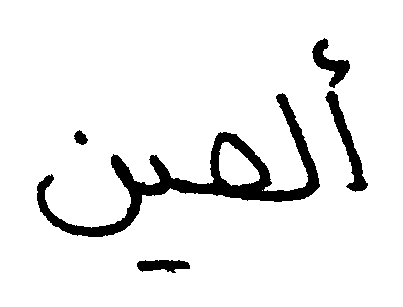 ألصين